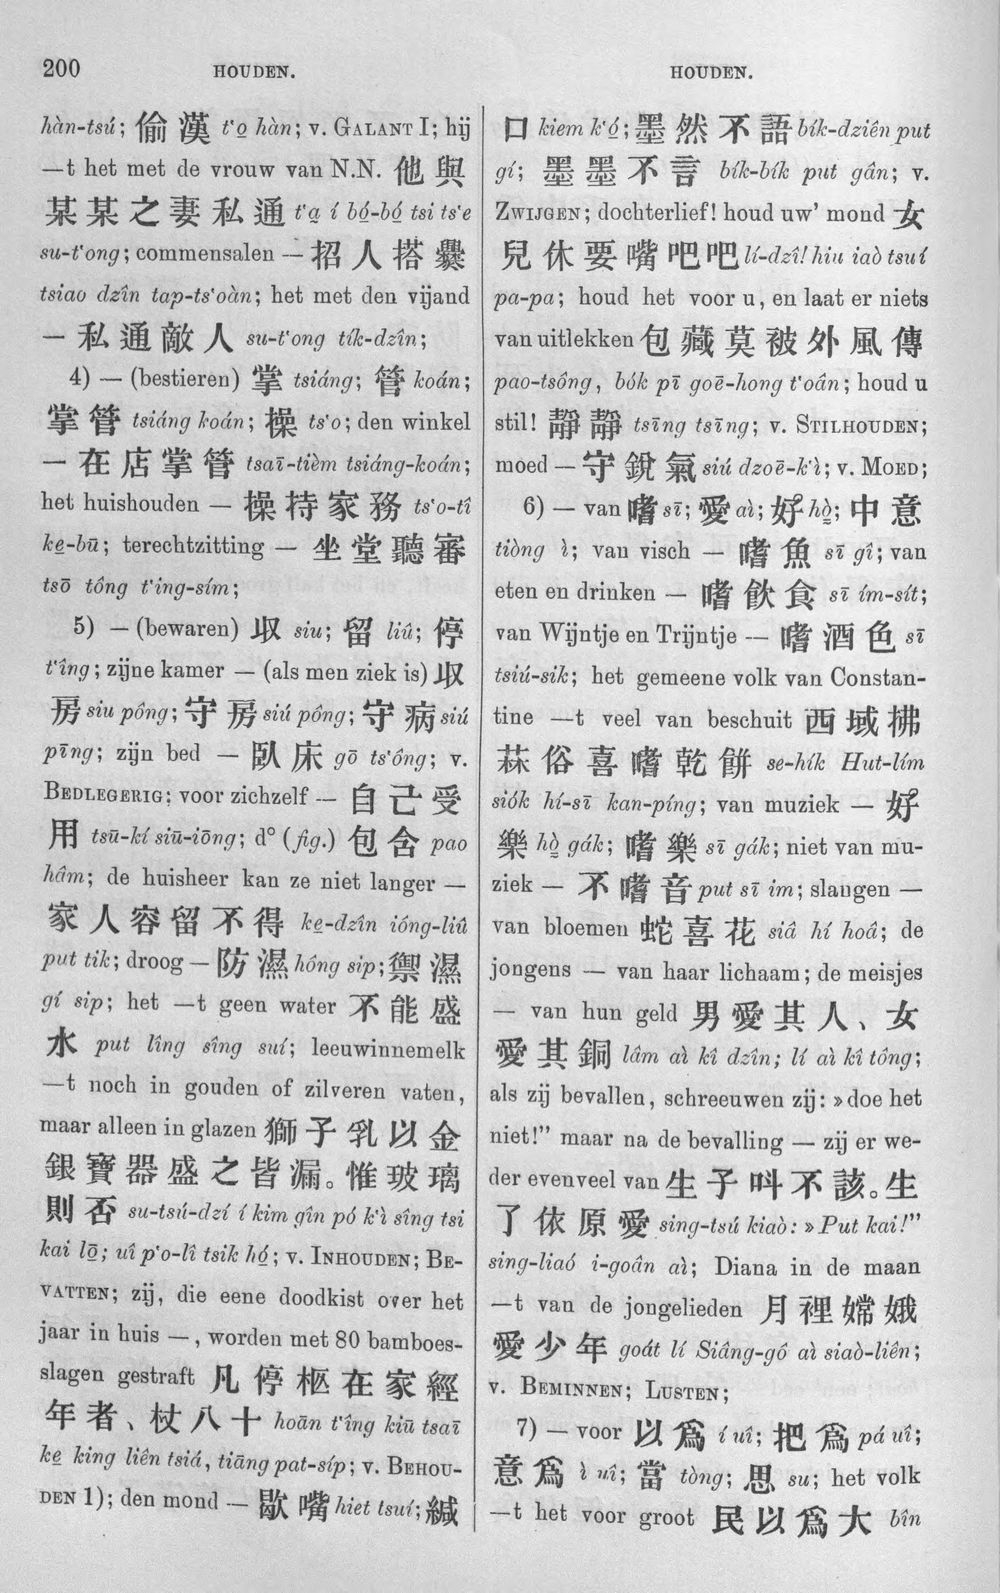 200 HOUDEN. HOUDEN.
hàn-tsú; 偷漢 t‘o̤ hàn; v. GALANT I; hij
—t het met de vrouw van N.N. 他與
某某之妻私通 t‘a̤ í bó̤-bó̤ tsi ts‘e
su-t‘ong; commensalen — 招人搭爨
tsiao dzîn tap-ts‘oàn; het met den vijand
— 私通敵人 su-t‘ong tík-dzîn;
4) — (bestieren) 掌 tsiáng; 管 koán;
掌管 tsiáng koán; 操 ts‘o; den winkel
— 在店掌管 tsaī-tièm tsiáng-koán;
het huishouden — 操持家務 ts‘o-tî
ke̤-bū; terechtzitting — 坐堂聽審
tsō tông t‘ing-sím;
5) — (bewaren) 収 siu; 留 liû; 停
t‘îng; zijne kamer — (als men ziek is) 収
房 siu pông; 守房 siú pông; 守病 siú
pīng; zijn bed — 臥床 gō ts‘ông; v.
BEDLEGERIG; voor zichzelf — 自己受
用 tsū-kí siū-iōng; d° (fig.) 包含 pao
hâm; de huisheer kan ze niet langer —
家人容留不得 ke̤-dzîn ióng-liû
put tik; droog — 防濕 hông sip; 禦濕
gí sip; het —t geen water 不能盛
水 put lîng sîng suí; leeuwinnemelk
—t noch in gouden of zilveren vaten,
maar alleen in glazen 獅子乳以金
銀寶器盛之皆漏。惟玻璃
則否 su-tsú-dzí í kim gîn pó k‘ì sîng tsi
kai lō̤; uî p‘o-lî tsik hó̤; v. INHOUDEN; BE-
VATTEN; zij, die eene doodkist over het
jaar in huis —, worden met 80 bamboes-
slagen gestraft 凡停柩在家經
年者、杖八十 hoān t‘îng kiū tsaī
ke̤ king liên tsiá, tiāng pat-síp; v. BEHOU-
DEN 1); den mond — 歇嘴 hiet tsuí; 緘
口 kiem k‘ó̤; 墨然不語 bík-dziên put
gí; 墨墨不言 bík-bík put gân; v.
ZWIJGEN; dochterlief! houd uw’ mond 女
兒休要嘴吧吧 lí-dzî! hiu iaò tsuí
pa-pa; houd het voor u, en laat er niets
van uitlekken 包藏莫被外風傳
pao-tsông, bók pī goē-hong t‘oân; houd u
stil! 靜靜 tsīng tsīng; v. STILHOUDEN;
moed — 守銳氣 siú dzoē-k‘ì; v. MOED;
6) — van 嗜 sī; 愛 aì; 好 hò̤; 中意
tiòng ì; van visch — 嗜魚 sī gî; van
eten en drinken — 嗜飲食 sī ím-sít;
van Wijntje en Trijntje — 嗜酒色 sī
tsiú-sik; het gemeene volk van Constan-
tine —t veel van beschuit 西域拂
菻俗喜嗜乾餅 se-hík Hut-lím
siók hí-sī kan-píng; van muziek — 好
樂 hò̤ gák; 嗜樂 sī gák; niet van mu-
ziek — 不嗜音 put sī im; slangen —
van bloemen 蛇喜花 siâ hí hoâ; de
jongens — van haar lichaam; de meisjes
— van hun geld 男愛其人、女
愛其銅 lâm aì kî dzîn; lí aì kî tông;
als zij bevallen, schreeuwen zij: »doe het
niet!” maar na de bevalling — zij er we-
der evenveel van 生子叫不該。生
了依原愛 sing-tsú kiaò: »Put kai!”
sing-liaó i-goân aì; Diana in de maan
—t van de jongelieden 月裡嫦娥
愛少年 goát lí Siâng-gô aì siaò-liên;
v. BEMINNEN; LUSTEN;
7) — voor 以爲 í uî; 把爲 pá uî;
意爲 ì uî; 當 tòng; 思 su; het volk
—t het voor groot 民以爲大 bîn